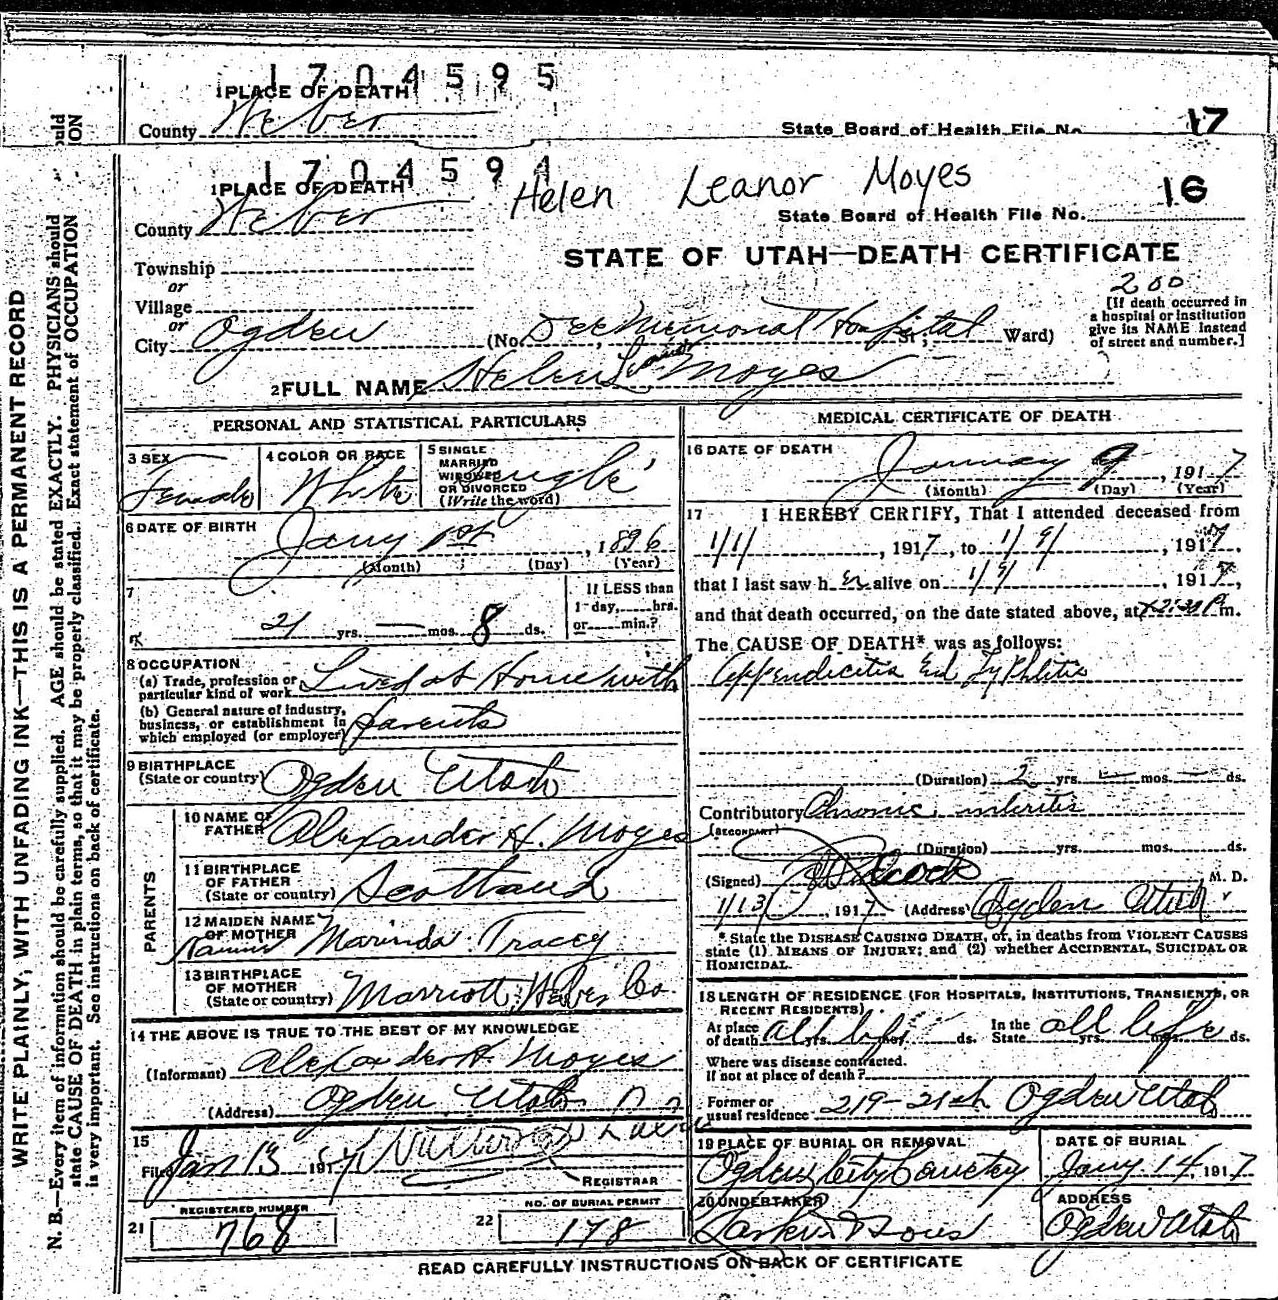 1704595
1 PLACE OF DEATH
County Weber
State Board of Health File No. 17
1704594
1 PLACE OF DEATH
Helen Leanor Moyes
16
County Weber
State Board of Health File No.
STATE OF UTAH—DEATH CERTIFICATE
Township
or
Village
or
City Ogden (No. Dee Memorial Hospital St.; Ward)
200
[If death occurred in
a hospital or institution
give its NAME instead
of street and number.]
2 FULL NAME Helen Leanor Moyes
PERSONAL AND STATISTICAL PARTICULARS
3 SEX
Female
4 COLOR OR RACE
White
5 SINGLE
MARRIED
WIDOWED
OR DIVORCED
(Write the word)
Single
6 DATE OF BIRTH
Jany 1st, 1896
(Month) (Day) (Year)
7
21 yrs. — mos. 8 ds.
If LESS than
1 day, hrs.
or min.?
8 OCCUPATION
(a) Trade, profession or
particular kind of work Lived at Home with
(b) General nature of industry,
business, or establishment in
which employed (or employer) parents
9 BIRTHPLACE
(State or country) Ogden Utah
PARENTS
10 NAME OF
FATHER Alexander H. Moyes
11 BIRTHPLACE
OF FATHER
(State or country) Scotland
12 MAIDEN NAME
OF MOTHER Marinda Tracey
13 BIRTHPLACE
OF MOTHER
(State or country) Marriott Weber Co.
14 THE ABOVE IS TRUE TO THE BEST OF MY KNOWLEDGE
(Informant) Alexander H. Moyes
(Address) Ogden Utah
15
Filed Jan 13 1917
REGISTRAR
21
REGISTERED NUMBER
768
22
NO. OF BURIAL PERMIT
178
MEDICAL CERTIFICATE OF DEATH
16 DATE OF DEATH
January 9, 1917
(Month) (Day) (Year)
17 I HEREBY CERTIFY, That I attended deceased from
1/1, 1917, to 1/9, 1917,
that I last saw her alive on 1/9, 1917,
and that death occurred, on the date stated above, at m.
The CAUSE OF DEATH* was as follows:
Appendicitis Typhlitis
(Duration) 2 yrs. — mos. — ds.
Contributory Chronic
(SECONDARY)
(Duration) yrs. mos. ds.
(Signed) M. D.
1/13, 1917 (Address) Ogden Utah
* State the DISEASE CAUSING DEATH, or, in deaths from VIOLENT CAUSES
state (1) MEANS OF INJURY; and (2) whether ACCIDENTAL, SUICIDAL OR
HOMICIDAL.
18 LENGTH OF RESIDENCE (FOR HOSPITALS, INSTITUTIONS, TRANSIENTS, OR
RECENT RESIDENTS)
At place
of death all life yrs. mos. ds. In the
State all life yrs. mos. ds.
Where was disease contracted.
If not at place of death?
Former or
usual residence 219-21st Ogden Utah
19 PLACE OF BURIAL OR REMOVAL
Ogden City Cemetery
DATE OF BURIAL
Jany. 14 1917
20 UNDERTAKER
Larkin & Sons
ADDRESS
Ogden Utah
READ CAREFULLY INSTRUCTIONS ON BACK OF CERTIFICATE
WRITE PLAINLY, WITH UNFADING INK—THIS IS A PERMANENT RECORD
N. B.—Every item of information should be carefully supplied. AGE should be stated EXACTLY. PHYSICIANS should
state CAUSE OF DEATH in plain terms, so that it may be properly classified. Exact statement of OCCUPATION
is very important. See instructions on back of certificate.